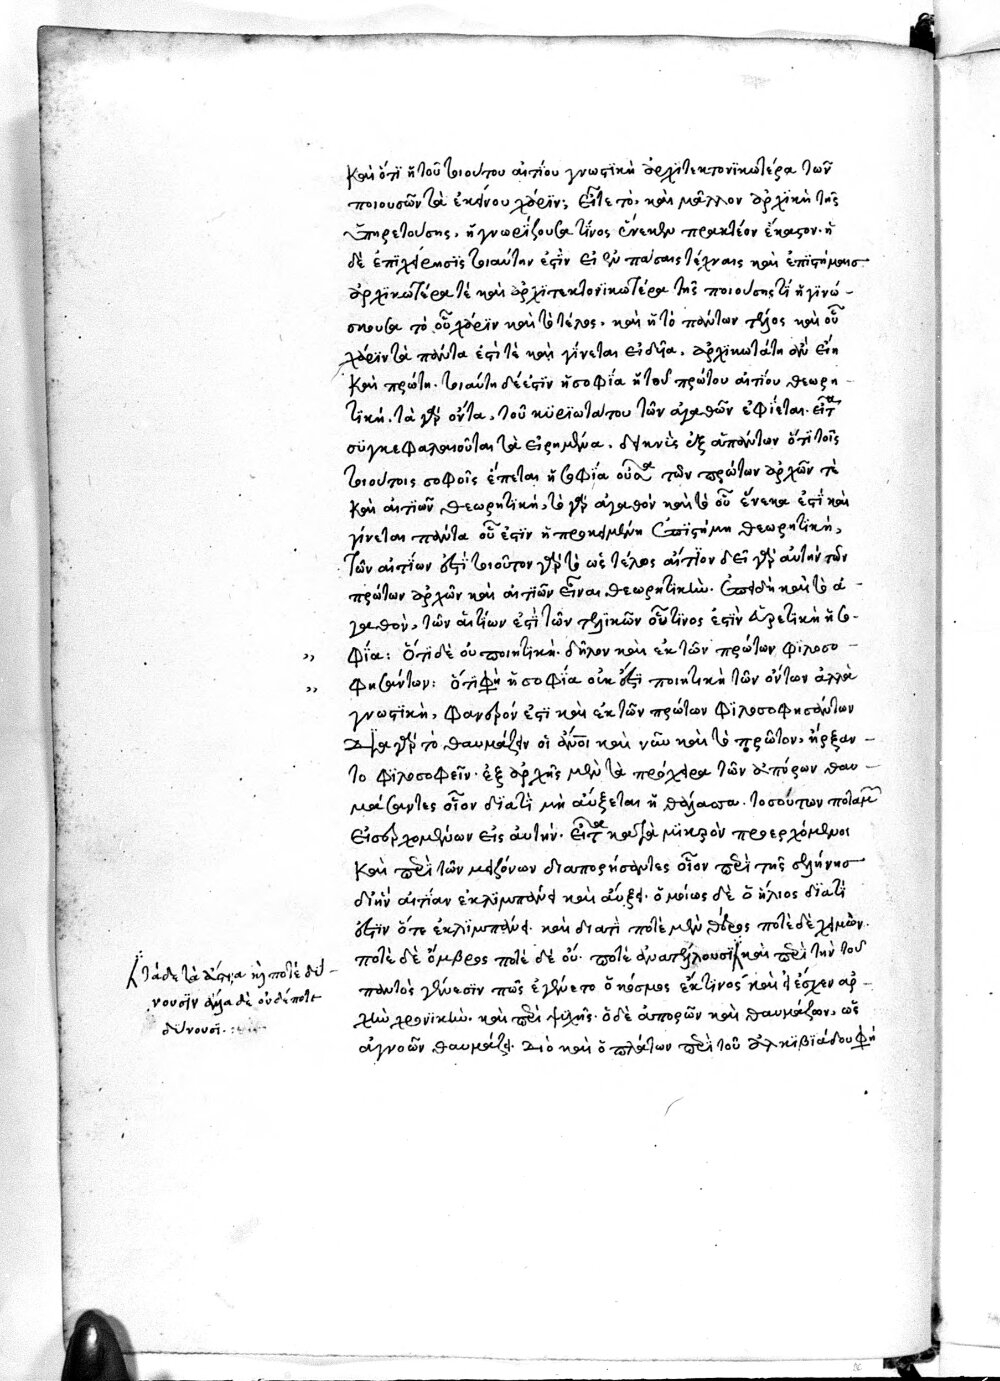 καὶ ὅτι ἡ τοῦ τοιούτου αἰτίου γνωστικὴ ἀρχιτεκτονικωτέρα τῶν
ποιουσῶν τὰ ἐκείνου χάριν; εἶτε τὸ, καὶ μᾶλλον ἀρχικὴ τῆς
ὑπηρετούσης, ἡ γνωρίζουσα τίνος ἕνεκεν πρακτέον ἕκαστον. ἡ
δὲ ἐπιχείρησις τοιαύτη ἐστὶν εἰ ἐν πάσαις τέχναις καὶ ἐπιστήμαις
ἀρχικωτέρα τὲ καὶ ἀρχιτεκτονικωτέρα τῆς ποιούσης τί ἡ γινώ-
σκουσα τὸ οὗ χάριν καὶ τὸ τέλος, καὶ ἡ τὸ πάντων τέλος καὶ οὗ
χάριν τὰ πάντα ἐστί τὲ καὶ γίνεται εἰδυῖα, ἀρχικωτάτη ἂν εἴη
καὶ πρώτη. τοιαύτη δέ ἐστιν ἡ σοφία ἡ τοῦ πρώτου αἰτίου θεωρη-
τική. τὰ γὰρ ὄντα, τοῦ κυριωτάτου τῶν ἀγαθῶν ἐφίεται. εἶτα
συγκεφαλαιοῦται τὰ εἰρημένα, δεικνὺς ἐξ ἁπάντων ὅτι τοῖς
τοιούτοις σοφοῖς ἕπεται ἡ σοφία οὖσα τῶν πρώτων ἀρχῶν τὲ
καὶ αἰτιῶν θεωρητική, τὸ γὰρ ἀγαθὸν καὶ τὸ οὗ ἕνεκα ἐστὶ καὶ
γίνεται πάντα οὗ ἐστιν ἡ προκειμένη ἐπιστήμη θεωρητική,
τῶν αἰτίων ἐστὶ τοιοῦτον γὰρ τὸ ὡς τέλος αἴτιον δεῖ γὰρ αὐτὴν τῶν
πρώτων ἀρχῶν καὶ αἰτιῶν εἶναι θεωρητικήν. ἐπειδὴ καὶ τὸ ἀ-
γαθὸν, τῶν αἰτίων ἐστὶ τῶν τελικῶν οὗτινος ἐστὶν ἡ σο-
φία: ὅτι δὲ οὐ ποιητική. δῆλον καὶ ἐκ τῶν πρώτων φιλοσο-
φησάντων: ὅτι φησὶ ἡ σοφία οὐκ ἔστι ποιητικὴ τῶν ὄντων ἀλλὰ
γνωστικὴ, φανερόν ἐστι καὶ ἐκ τῶν πρώτων φιλοσοφησάντων
διὰ γὰρ τὸ θαυμάζειν οἱ ἄνθρωποι καὶ νῦν καὶ τὸ πρῶτον, ἤρξαν-
το φιλοσοφεῖν. ἐξ ἀρχῆς μὲν τὰ πρόχειρα τῶν ἀπόρων θαυ-
μάσαντες οἷον διατί μὴ αὔξεται ἡ θάλασσα. τοσούτων ποταμῶν
εἰσερχομένων εἰς αὐτήν. εἶτα κατὰ μικρὸν προερχόμενοι
καὶ περὶ τῶν μειζόνων διαπορήσαντες οἷον περὶ τῆς σελήνης
δι' ἣν αἰτίαν ἐκλιμπάνει καὶ αὔξει. ὁμοίως δὲ ὁ ἥλιος διατί
ἔστιν ὅτε ἐκλιμπάνει. καὶ διατί ποτὲ μὲν θέρος ποτὲ δὲ χειμών.
ποτὲ δὲ ὄμβρος ποτὲ δὲ οὔ. ποτὲ ἀνατέλλουσι καὶ περὶ τὴν τοῦ
παντὸς γένεσιν πῶς ἐγένετο ὁ κόσμος ἐκ τίνος καὶ εἰ ἔσχεν ἀρ-
χὴν χρονικήν. καὶ περὶ ψυχῆς. ὁ δὲ ἀπορῶν καὶ θαυμάζων, ὡς
ἀγνοῶν θαυμάζει. διὸ καὶ ὁ πλάτων περὶ τοῦ ἀλκιβιάδου φησὶ
τάδε τὰ ἄστρα καὶ ποτὲ δύ-
νουσιν ἄλλα δὲ οὐδέποτε
δύνουσι.